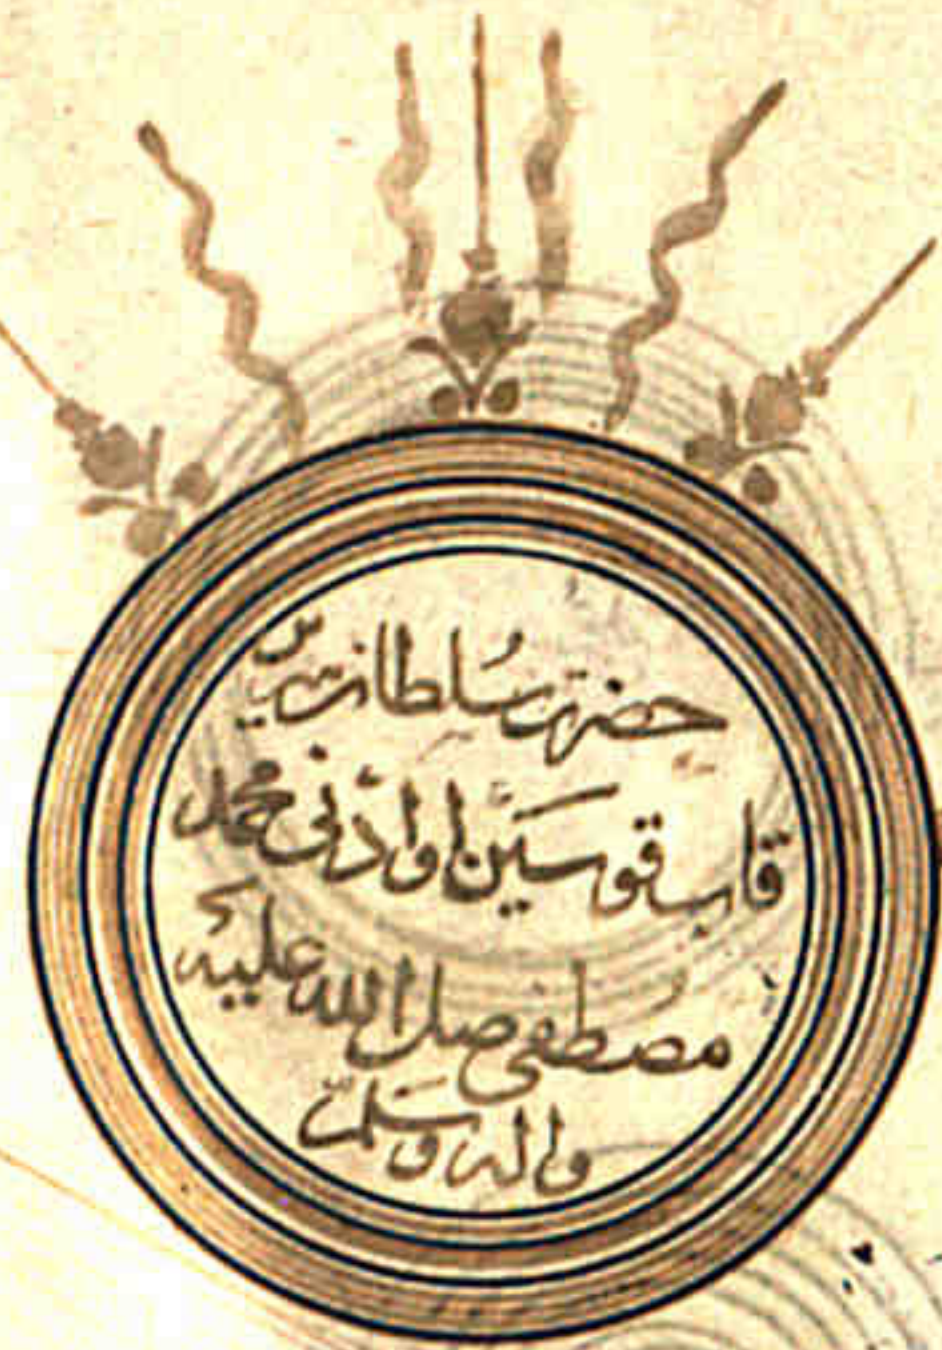 حضرت سلطان سریر
قاب قوسین او ادنی محمد
مصطفی صلی الله علیه
واله وسلم